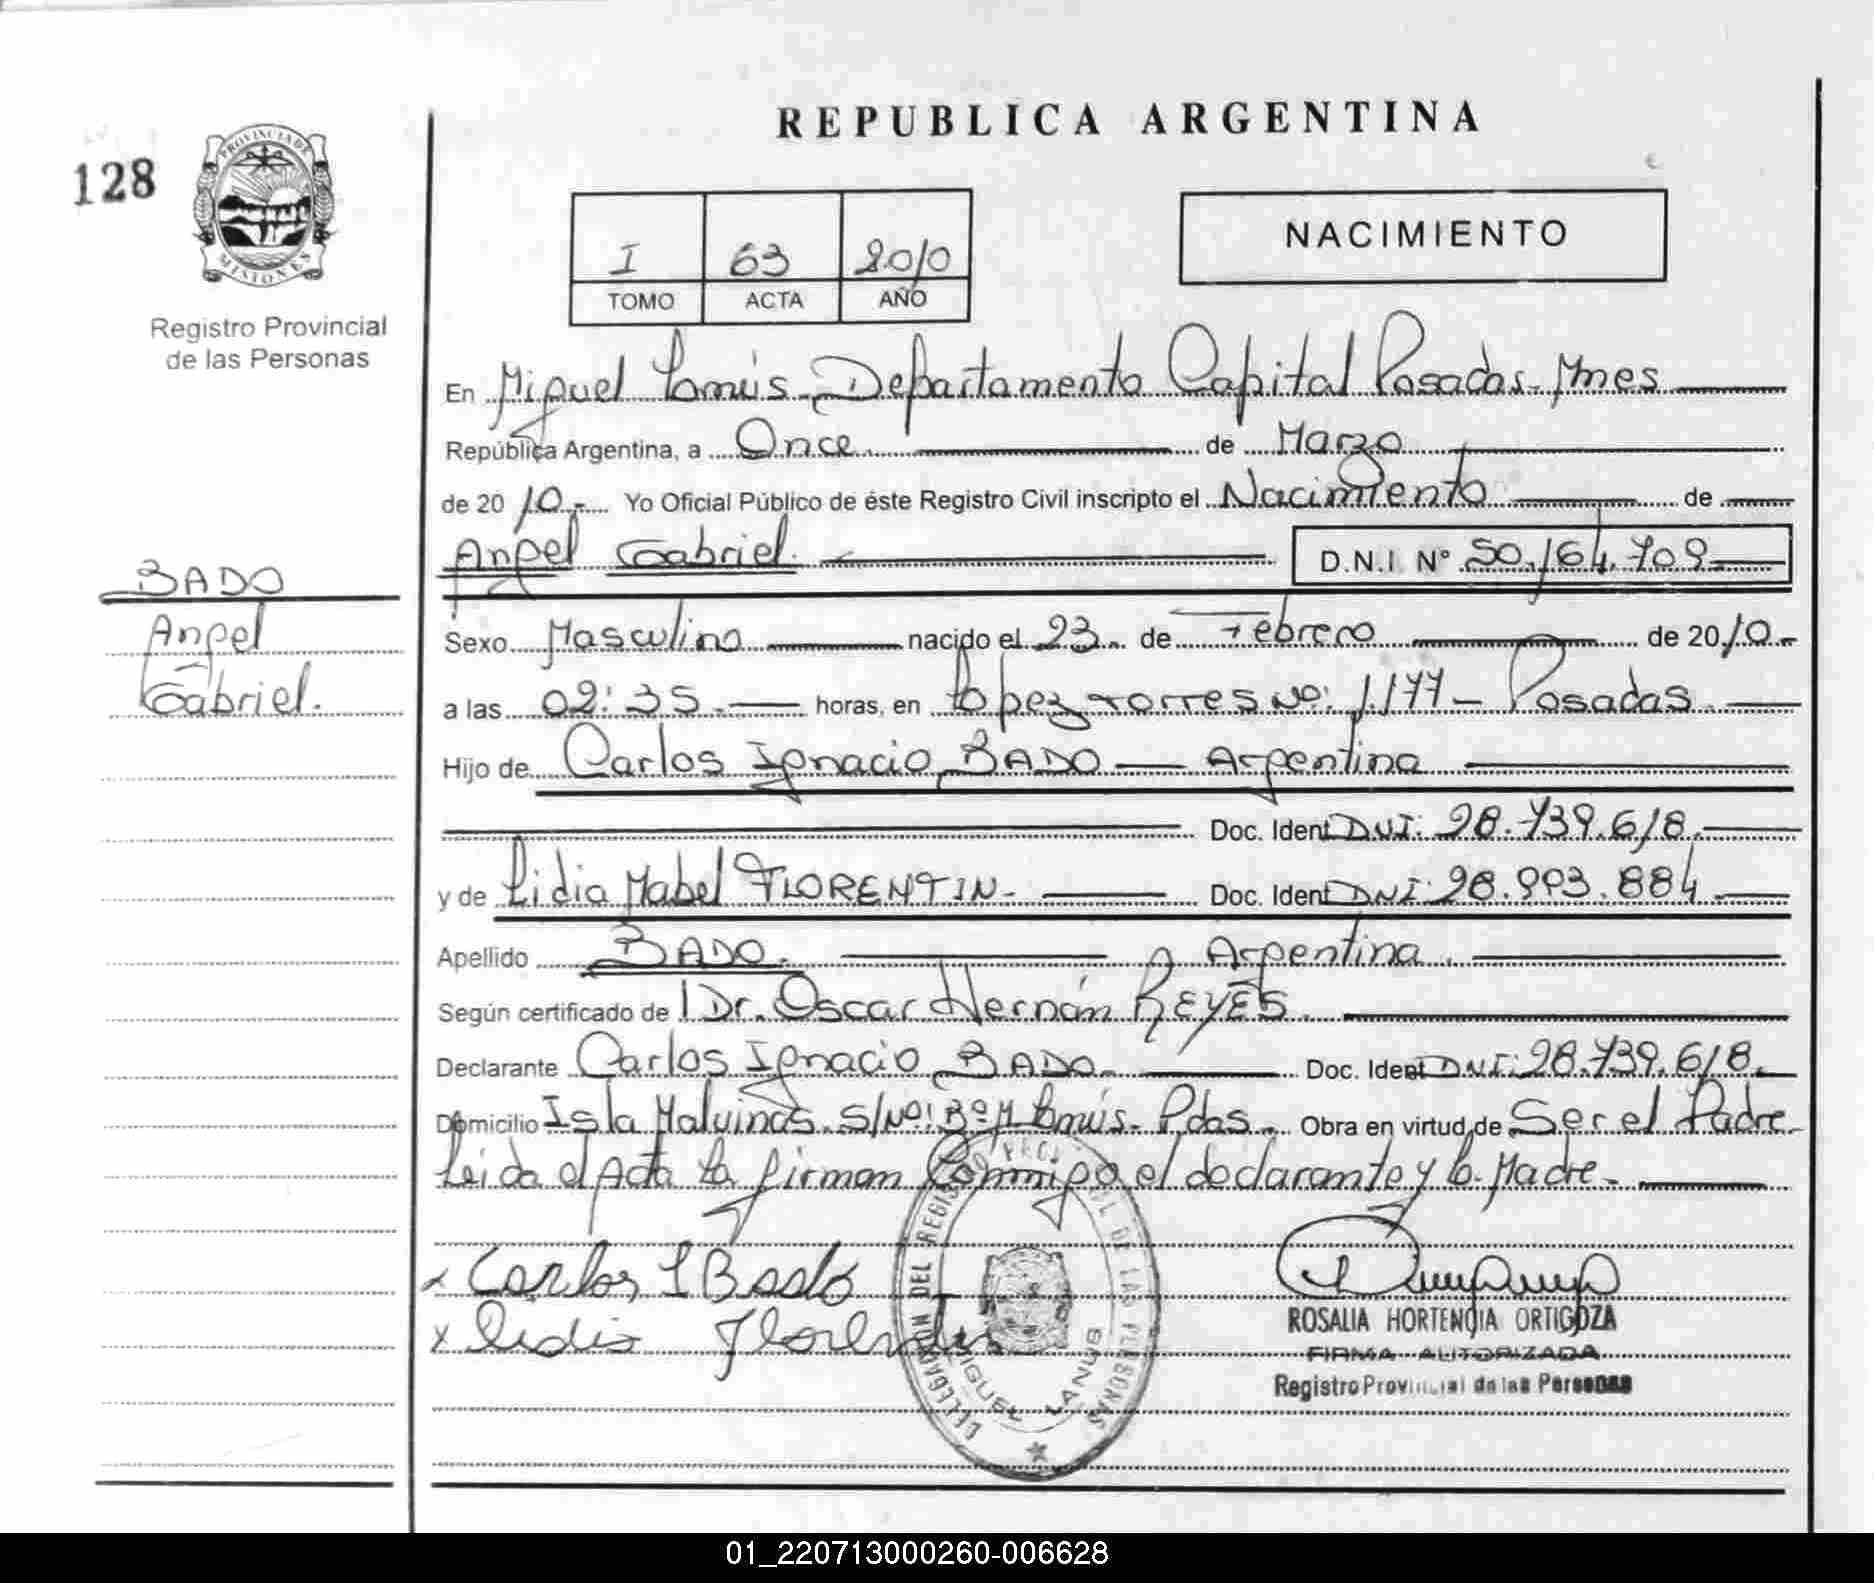 REPUBLICA ARGENTINA
128
PROVINCIA DE
MISIONES
Registro Provincial
de las Personas
I 63 2010
TOMO ACTA AÑO
NACIMIENTO
En Miguel Lanús - Departamento Capital Posadas - Mnes
República Argentina, a Once de Marzo
de 20 10.- Yo Oficial Público de éste Registro Civil inscripto el Nacimiento de
Angel Gabriel. D.N.I. N° 50.164.709
BADO
Angel
Gabriel.
Sexo Masculino nacido el 23 - de Febrero de 20 10.-
a las 02:35.- horas, en López Torres Nº: 1.177 - Posadas.
Hijo de Carlos Ignacio BADO - Argentina
Doc. Ident DNI: 28.739.618.
y de Lidia Mabel FLORENTIN - Doc. Ident DNI: 28.993.884.
Apellido BADO. Argentina.
Según certificado de l Dr. Oscar Hernán REYES.
Declarante Carlos Ignacio BADO. Doc. Ident DNI: 28.739.618.
Domicilio Isla Malvinas. S/Nº: Bº M. Lanús - Pdas. Obra en virtud de Ser el Padre
Leida el Acta la firman Conmigo el declarante y la Madre -
x Carlos I Bado
x Lidia Florentin
DELEGACION DEL REGISTRO PROVINCIAL DE LAS PERSONAS
MIGUEL LANUS
ROSALIA HORTENCIA ORTIGOZA
FIRMA AUTORIZADA
Registro Provincial de las Personas
01_220713000260-006628